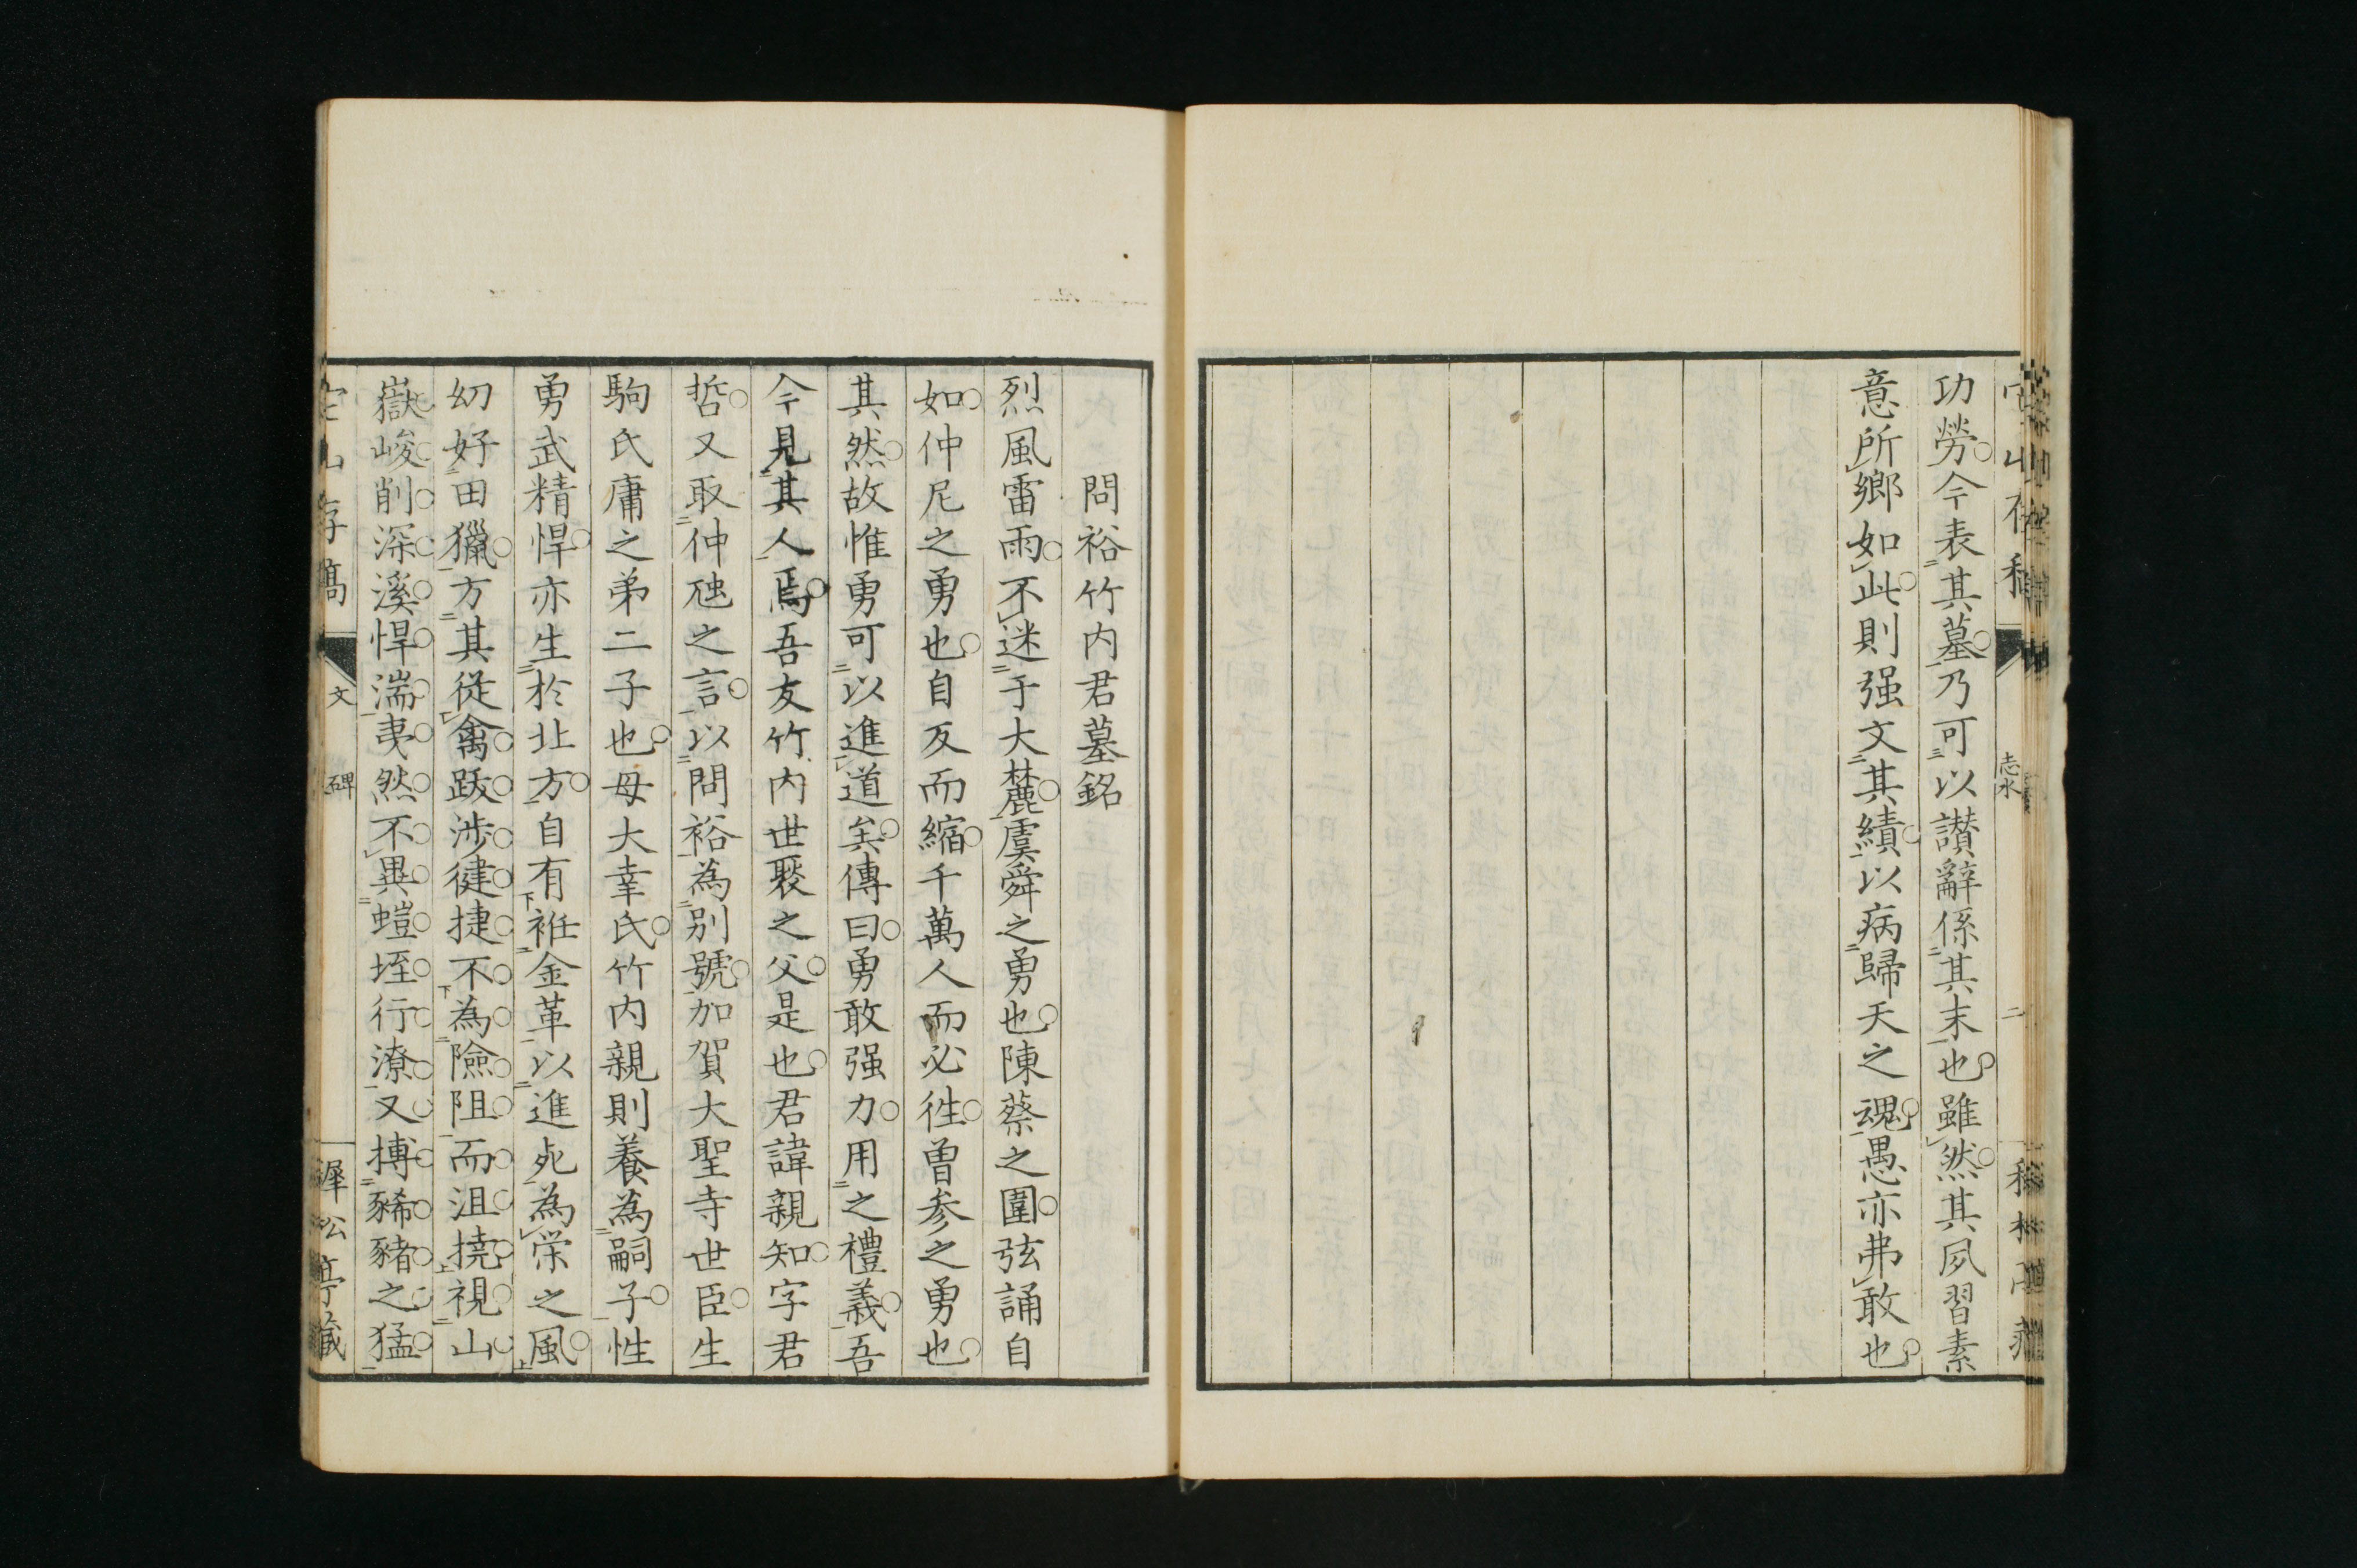 功勞今表其墓乃可以讃辭係其末也雖然其夙習素
意所鄉如此則强文其績以病歸天之魂愚亦弗敢也
志水
二
問裕竹内君墓銘
烈風雷雨不迷于大麓虞舜之勇也陳蔡之圍弦誦自
如仲尼之勇也自反而縮千萬人而必徃曽参之勇也
其然故惟勇可以進道矣傳曰勇敢强力用之禮義吾
今見其人焉吾友竹内世聚之父是也君諱親知字君
哲又取仲虺之言以問裕為別號加賀大聖寺世臣生
駒氏庸之弟二子也母大幸氏竹内親則養為嗣子性
勇武精悍亦生於北方自有袵金革以進死為栄之風
幼好田獵方其從禽跋渉徤捷不為險阻而沮撓視山
嶽峻削深溪悍湍夷然不異螘垤行潦又摶豨豬之猛
文
碑
存稿